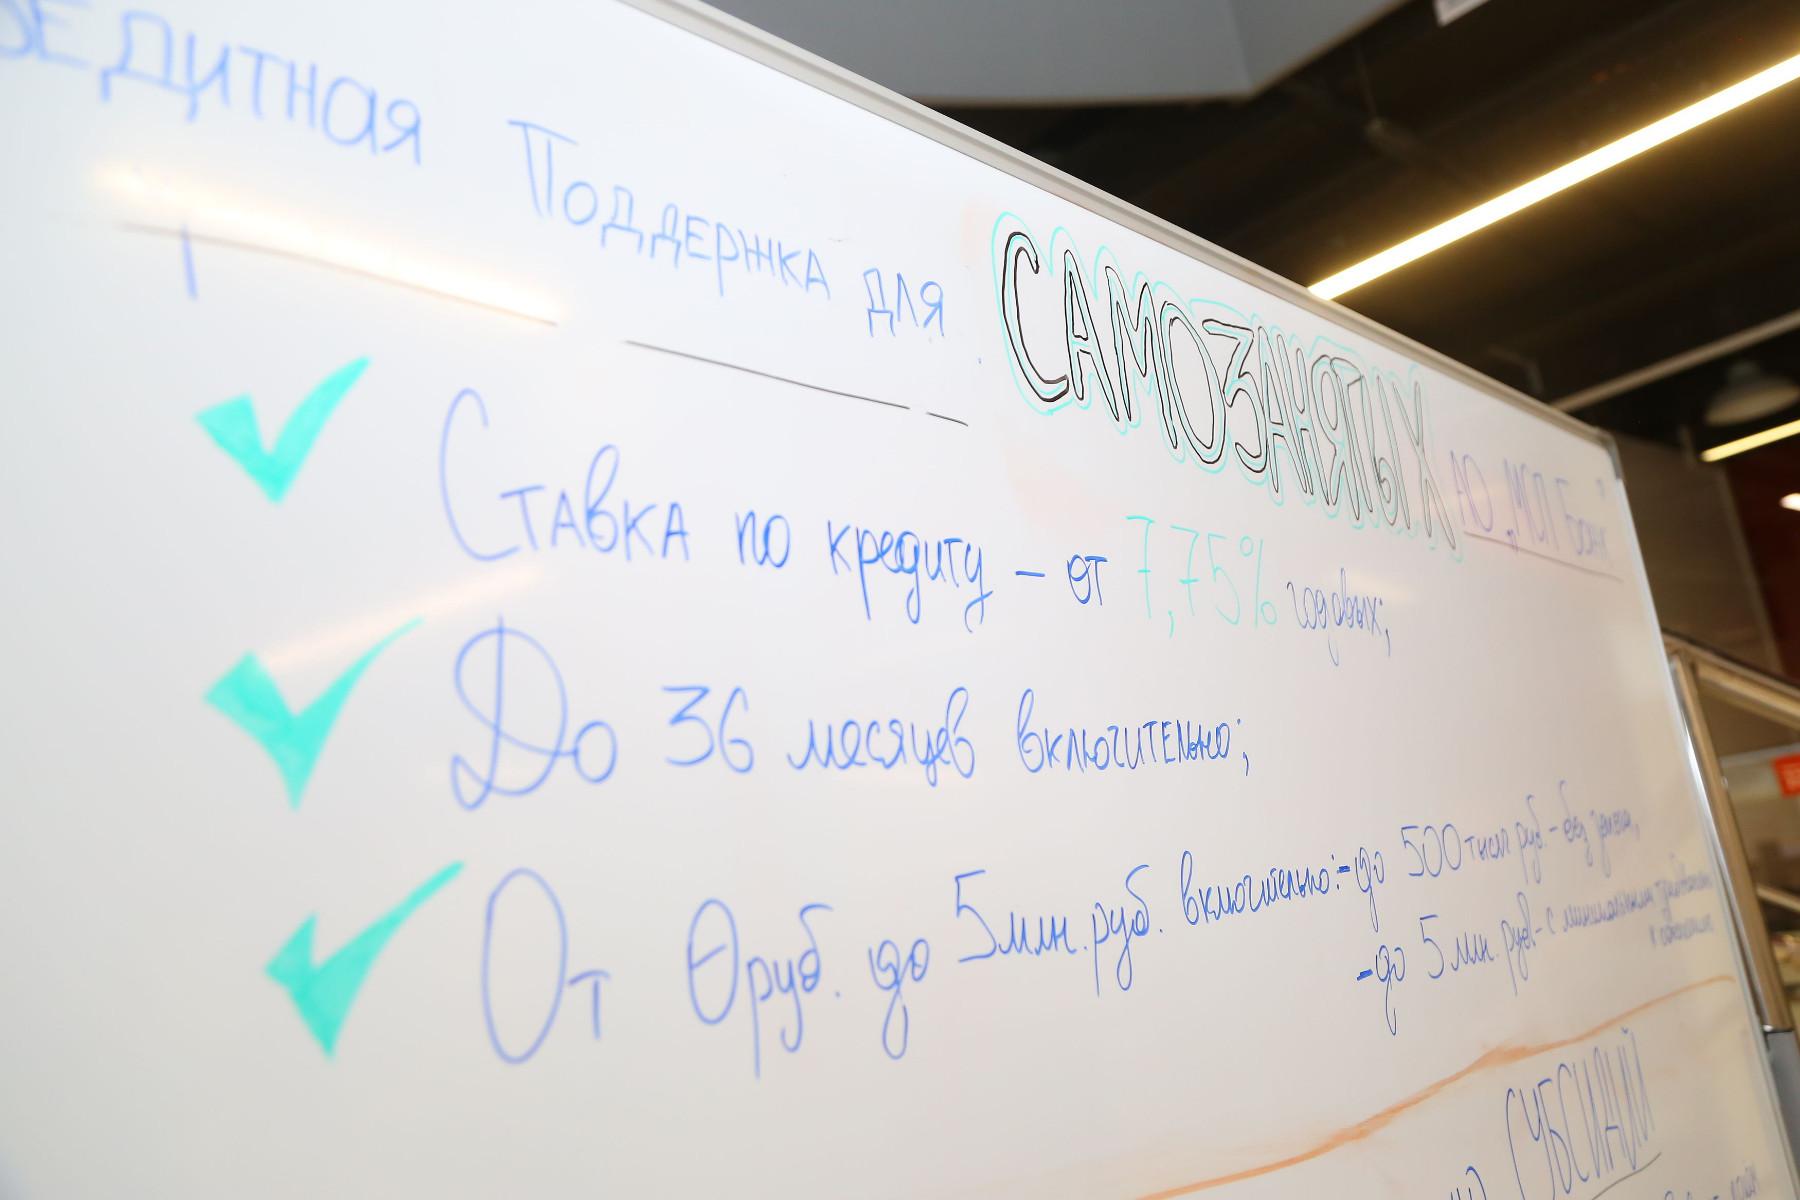 едитная Поддержка для САМОЗАНЯТЫХ АО „МСП Банк"
Ставка по кредиту – от 7,75% годовых;
До 36 месяцев включительно;
От 0 руб. до 5 млн. руб. включительно: - до 500 тысяч руб. - без залога,
- до 5 млн. руб - с минимальными требованиями
к
СУБСИДИЙ